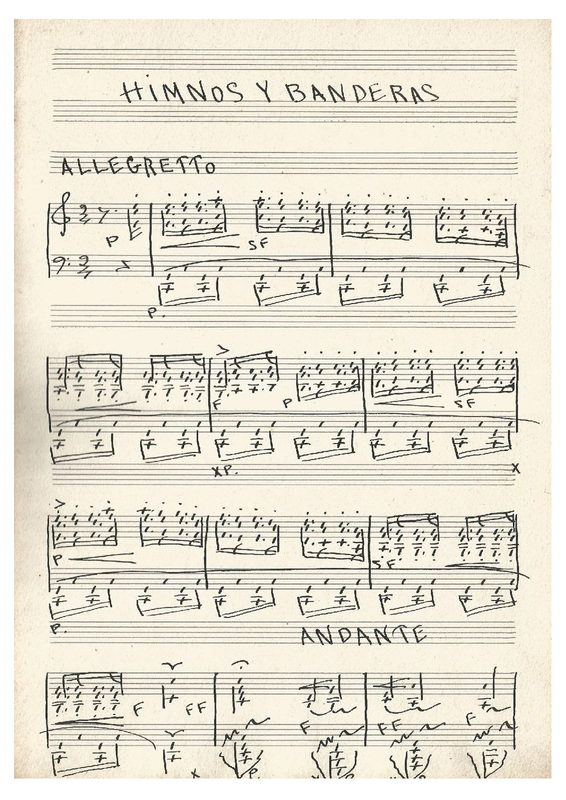 HIMNOS Y BANDERAS
ALLEGRETTO
P
SF
P.
F
P
SF
XP.
X
P
SF
P.
ANDANTE
F
FF
F
FF
F
X
P